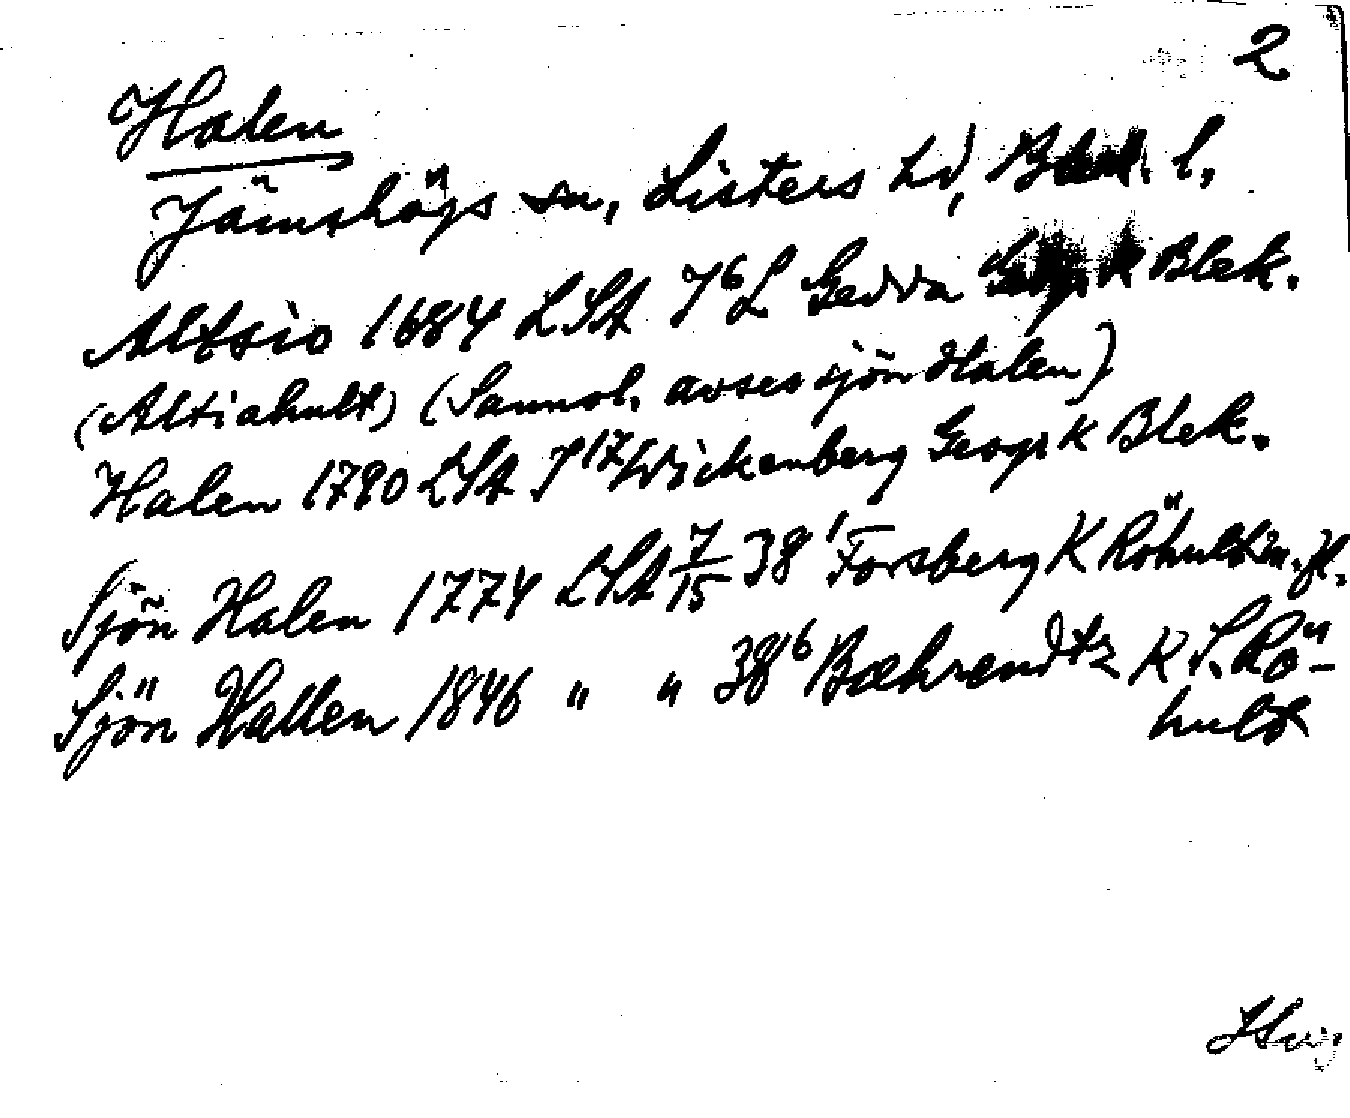 2
Halen
Jämshögs sn, Listers hd, Blek. l.
Altsio 1684 LSA J⁶L Gedda Geogr. K Blek.
(Altiahult) (Sannol. avses sjön Halen)
Halen 1780 LSA J¹⁷ Wickenberg Geogr K Blek.
Sjön Halen 1774 LSA 7/15 38¹ Forsberg K Röhult m. fl.
Sjön Hallen 1846 " " 38⁶ Bæhrendtz K S. Rö-
hult